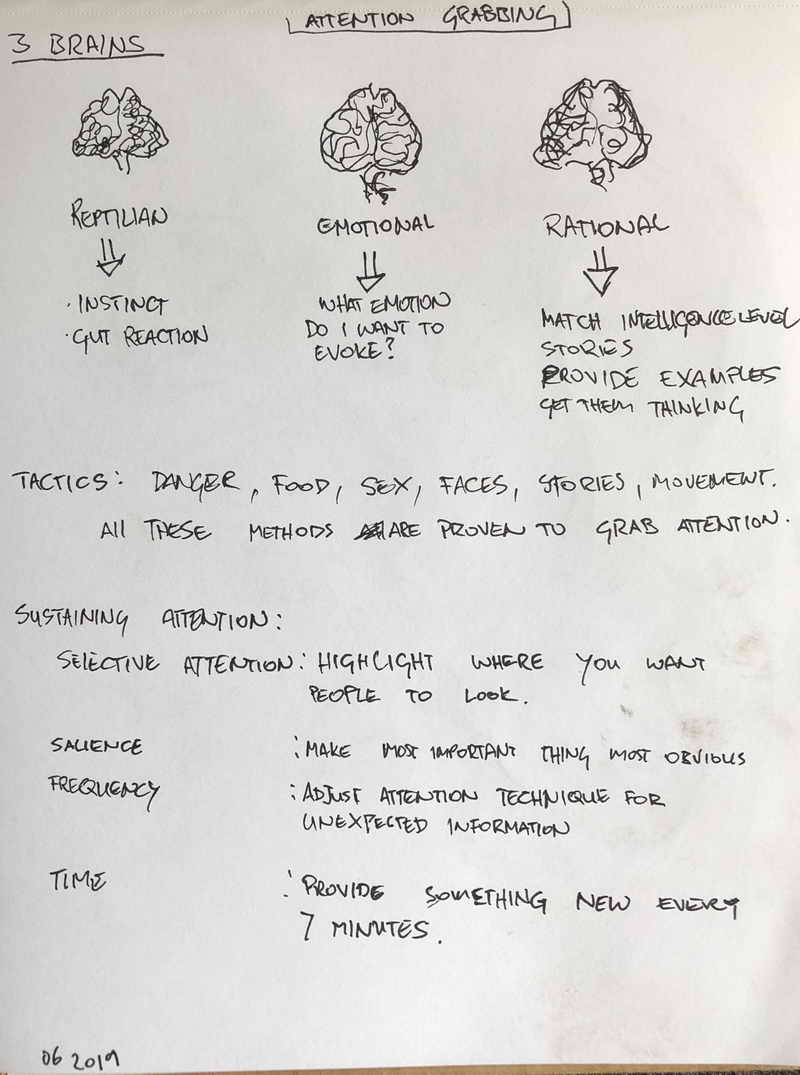 ATTENTION GRABBING
3 BRAINS
REPTILIAN
· INSTINCT
· GUT REACTION
EMOTIONAL
WHAT EMOTION
DO I WANT TO
EVOKE?
RATIONAL
MATCH INTELLIGENCE LEVEL
STORIES
PROVIDE EXAMPLES
GET THEM THINKING
TACTICS: DANGER, FOOD, SEX, FACES, STORIES, MOVEMENT.
All THESE METHODS ARE PROVEN TO GRAB ATTENTION.
SUSTAINING ATTENTION:
SELECTIVE ATTENTION: HIGHLIGHT WHERE YOU WANT
PEOPLE TO LOOK.
SALIENCE : MAKE MOST IMPORTANT THING MOST OBVIOUS
FREQUENCY : ADJUST ATTENTION TECHNIQUE FOR
UNEXPECTED INFORMATION
TIME : PROVIDE SOMETHING NEW EVERY
7 MINUTES.
06 2019